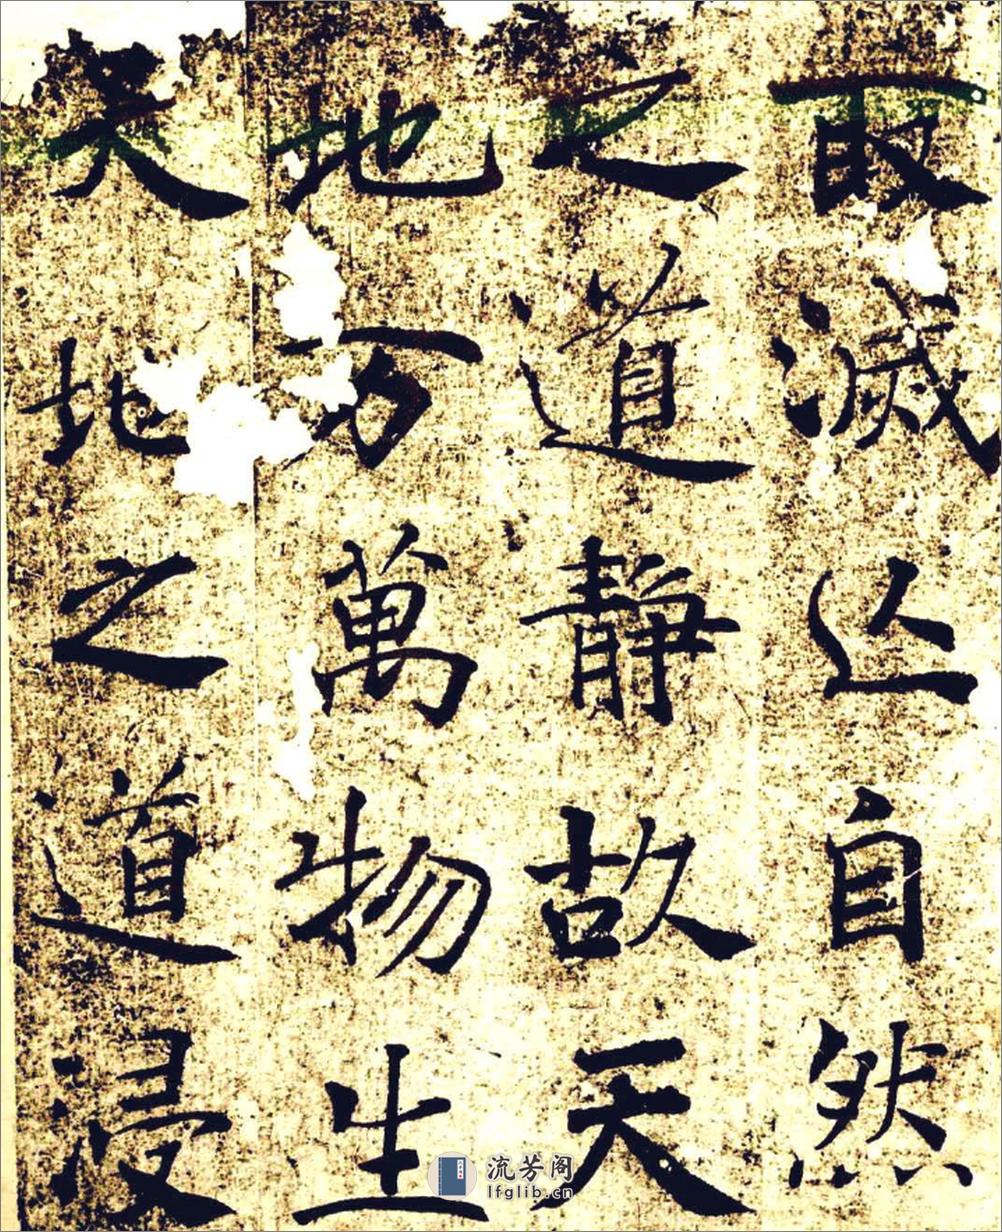 取滅亾自然
之道靜故天
地万萬物生
天地之道浸
流芳阁
lfglib.cn